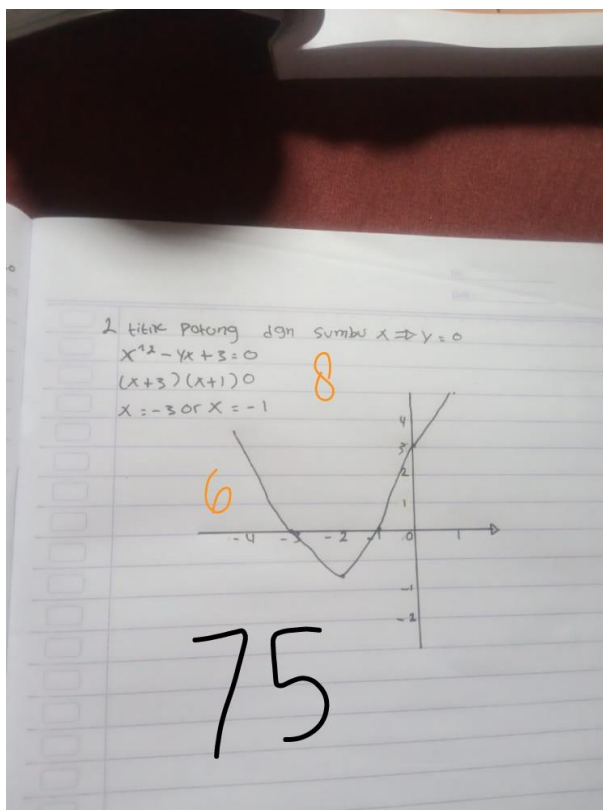 2 titik potong dgn sumbu x ⇒ y = 0
x^2 - 4x + 3 = 0
(x+3)(x+1) 0
x = -3 or x = -1
8
6
4
3
2
1
-4 -3 -2 -1 0 1
-1
-2
75